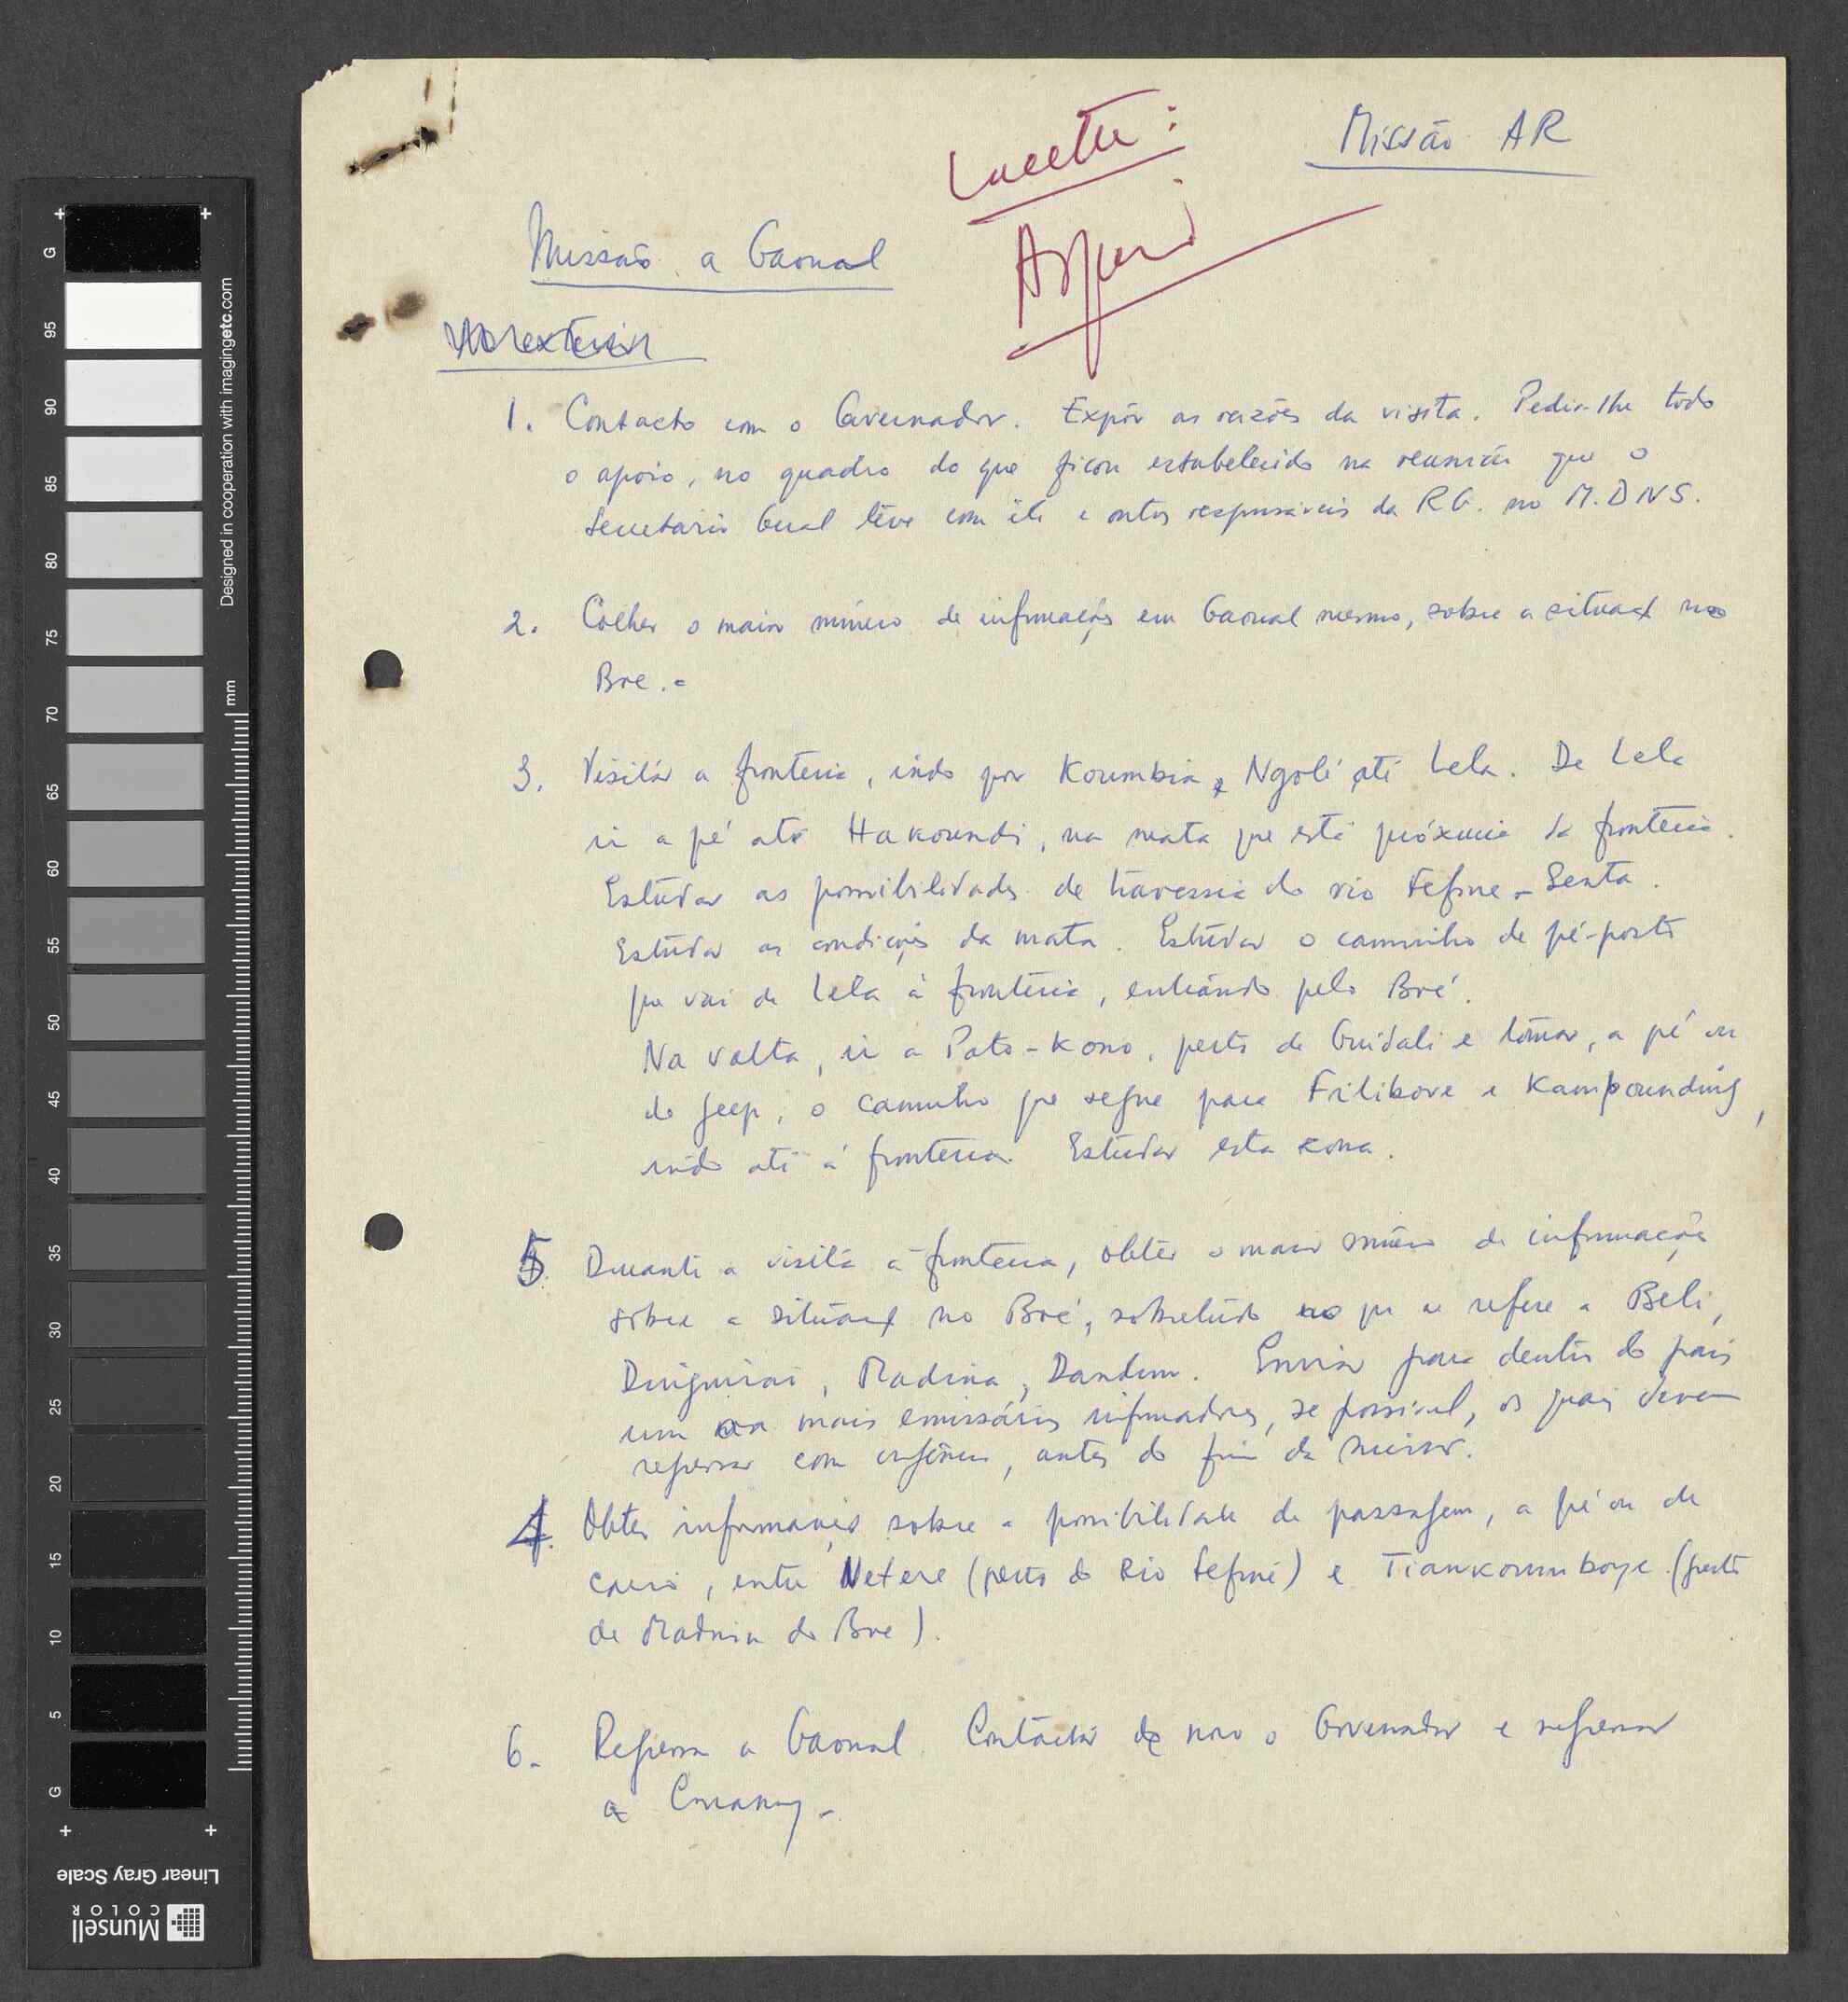 Lucette :
Missão AR
Missão a Gaoual
No exterior
1. Contacto com o Governador. Expôr as razões da visita. Pedir-lhe todo
o apoio, no quadro do que ficou estabelecido na reunião que o
Secretário Geral teve com êle e outros responsáveis da RG. no M.DNS.
2. Colher o maior número de informações em Gaoual mesmo, sobre a situaç no
Boe.-
3. Visitar a fronteira, indo por Koumbia, Ngolé até Lela. De Lela
ir a pé até Hakoundi, na mata que está próxima da fronteira.
Estudar as possibilidades de travessia do rio Fefine-Senta.
Estudar as condições da mata. Estudar o caminho de pé-posto
que vai de Lela à fronteira, entrando pelo Boé.
Na volta, ir a Pato-Kono, perto de Guidali e tomar, a pé ou
de jeep, o caminho que segue para Filibove e Kampounding,
indo até à fronteira. Estudar esta zona.
5. Durante a visita à fronteira, obter o maior número de informação
sobre a situaç no Boé, sobretudo no que se refere a Beli,
Dinguirai, Madina, Dandum. Enviar para dentro do país
um ou mais emissários informadores, se possível, os quais devem
regressar com urgência, antes do fim da missão.
4. Obter informações sobre a possibilidade de passagem, a pé ou de
carro, entre Netere (perto do Rio Fefiné) e Tiankoumboye (perto
de Madina do Boe).
6. Regressar a Gaoual. Contactar de novo o Governador e regressar
a Conakry.-
Linear Gray Scale
Munsell
COLOR
Designed in cooperation with imagingetc.com
mm
G
95
90
85
80
75
70
65
60
55
50
45
40
35
30
25
20
15
10
5
G